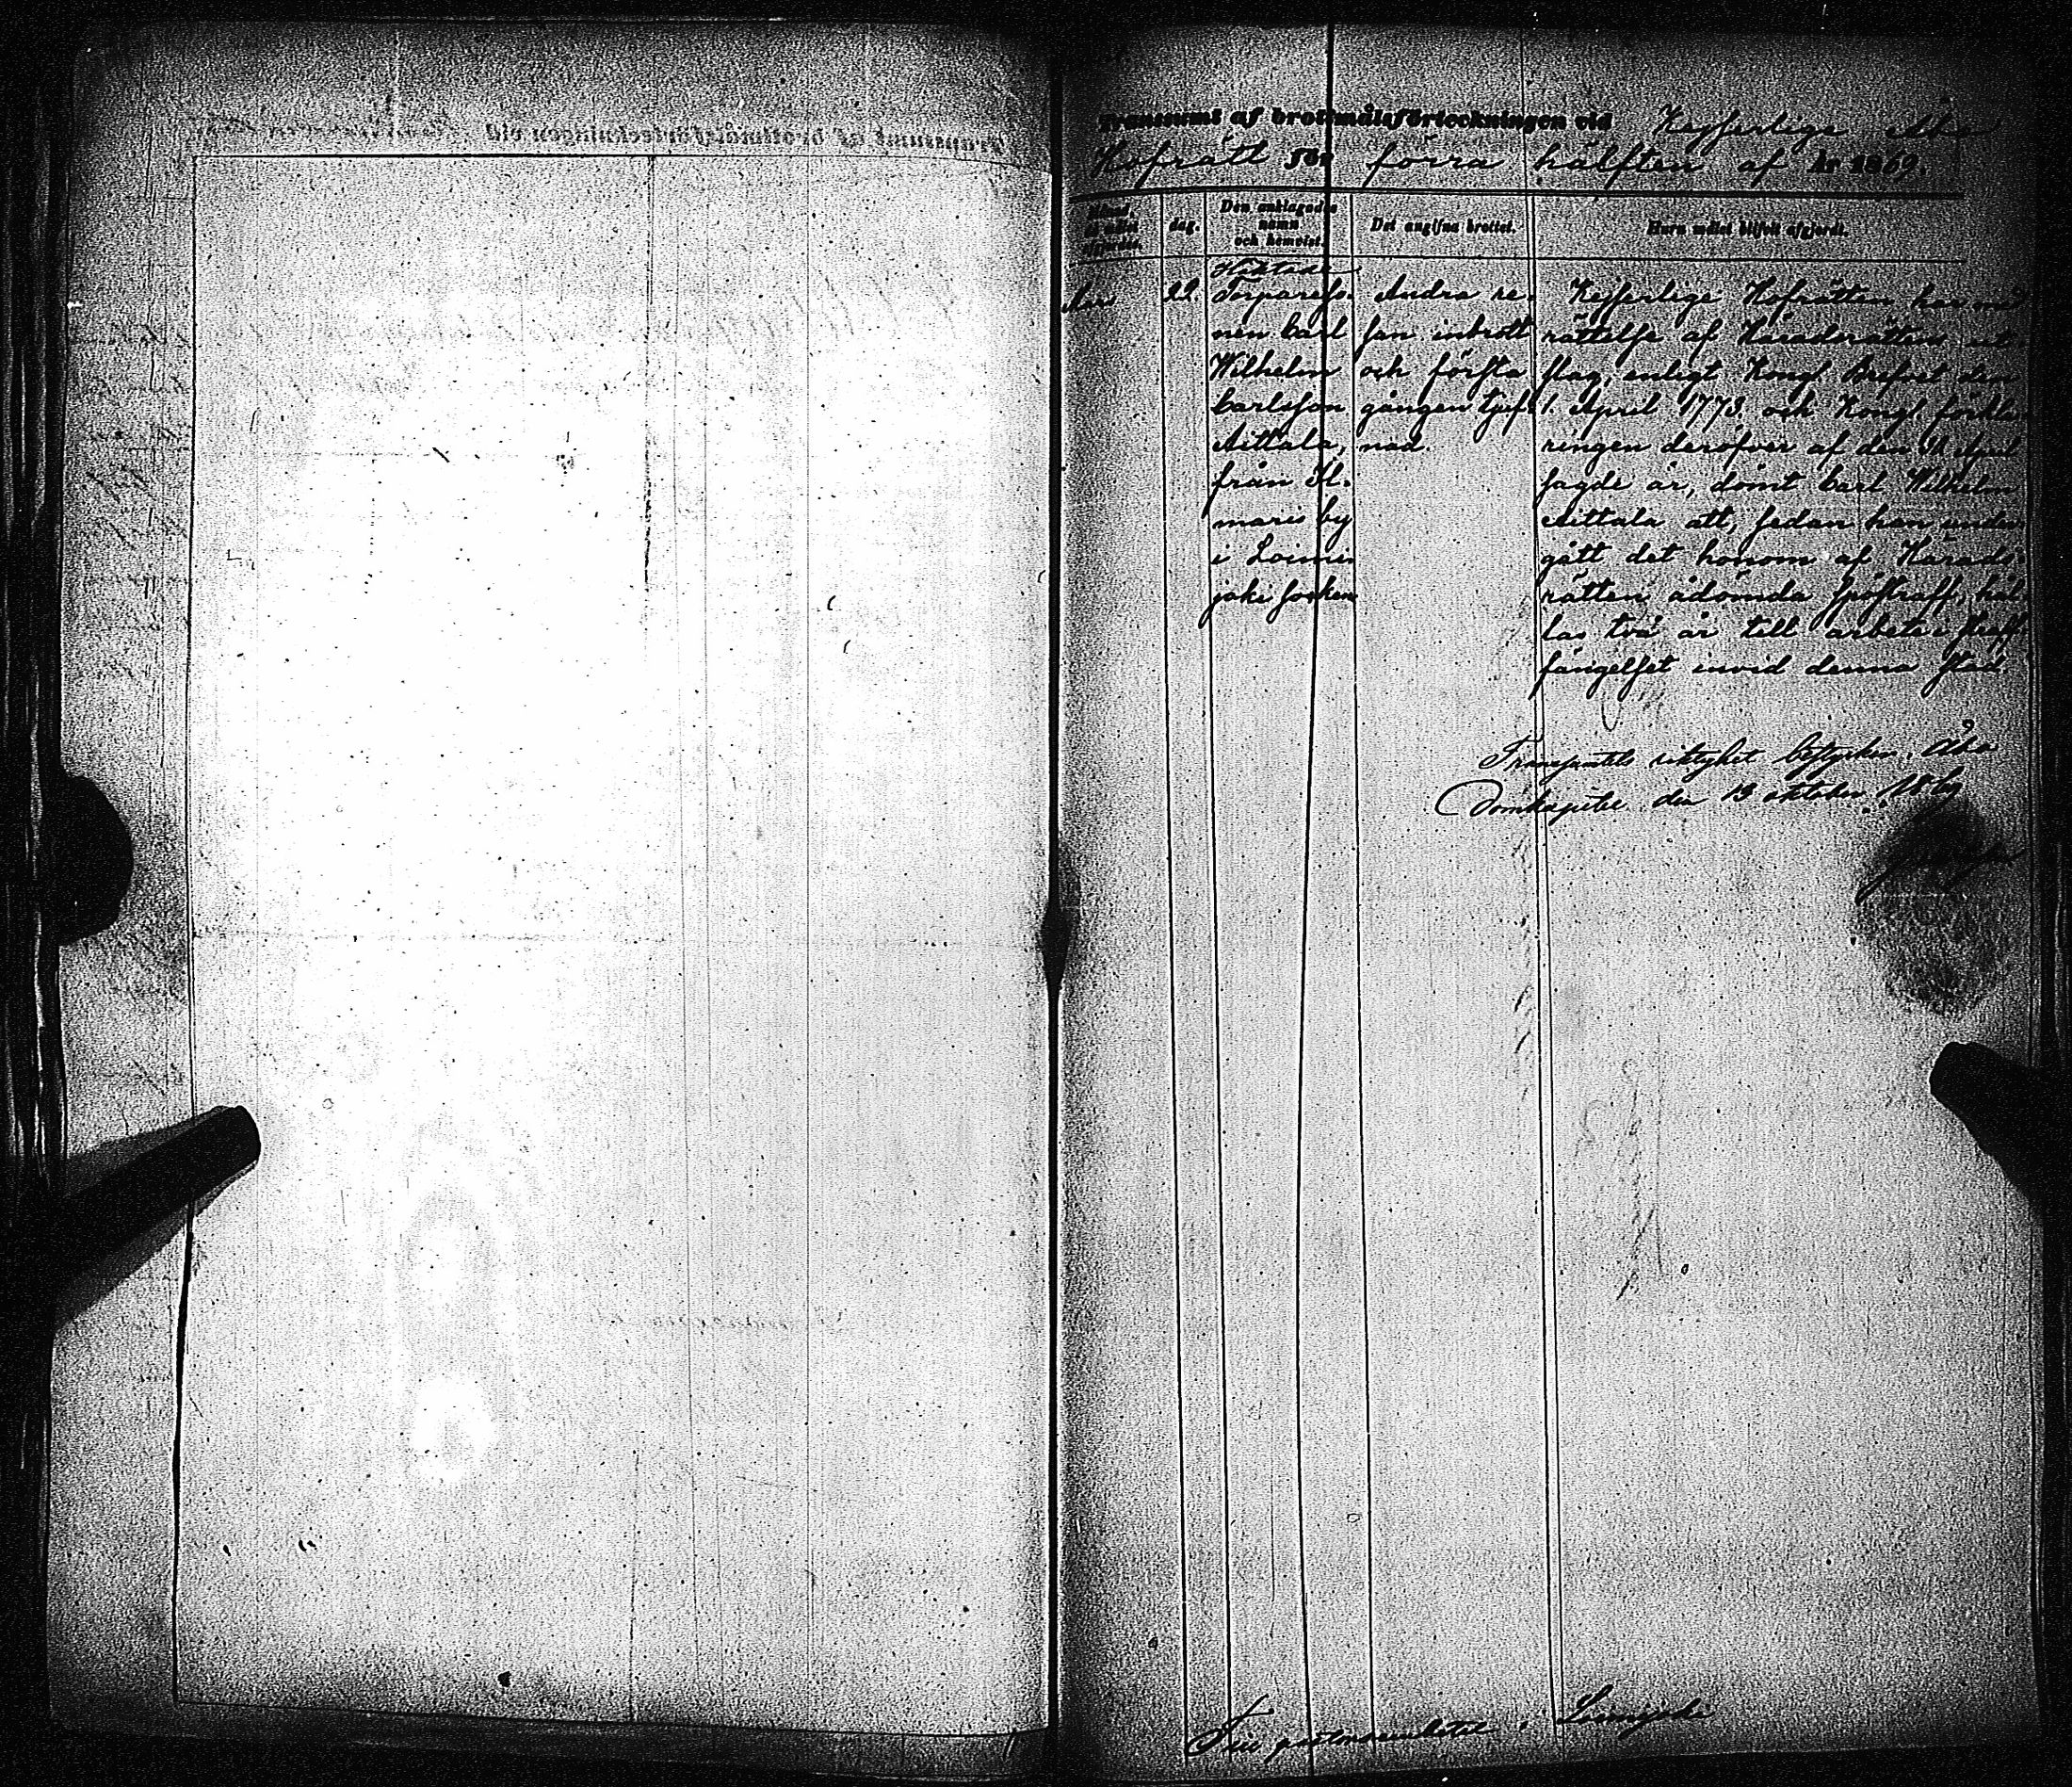 Transsumt af brottmålsförteckningen vid Kejserlige Åbo
Hofrätt för förra hälften af år 1869.
Månad,
då målet
afgjordts.
dag.
Den anklagades
namn
och hemvist.
Det angifna brottet.
Huru målet blifvit afgjordt.
22.
Häktade
Torpareso-
nen Carl
Wilhelm
Carlsson
Aittala,
från Il-
maris by
i Loimi-
joki socken
Andra re-
san inbrott
och första
gången tjuf-
nad.
Kejserlige Hofrätten har med
rättelse af Häradsrättens ut-
slag, enligt Kongl. Brefvet den
1. April 1773 och Kongl. förkla-
ringen deröfver af den April
sagde år, dömt Carl Wilhelm
Aittala att, sedan han under-
gått det honom af Härads-
rätten ådömda spöstraff, hål-
las två år till arbete i straff-
fängelset invid denna stad
Transsumtets riktighet bestyrker. Åbo
Domkapitel den 13 oktober 1869
Till pastorsembetet i Loimijoki